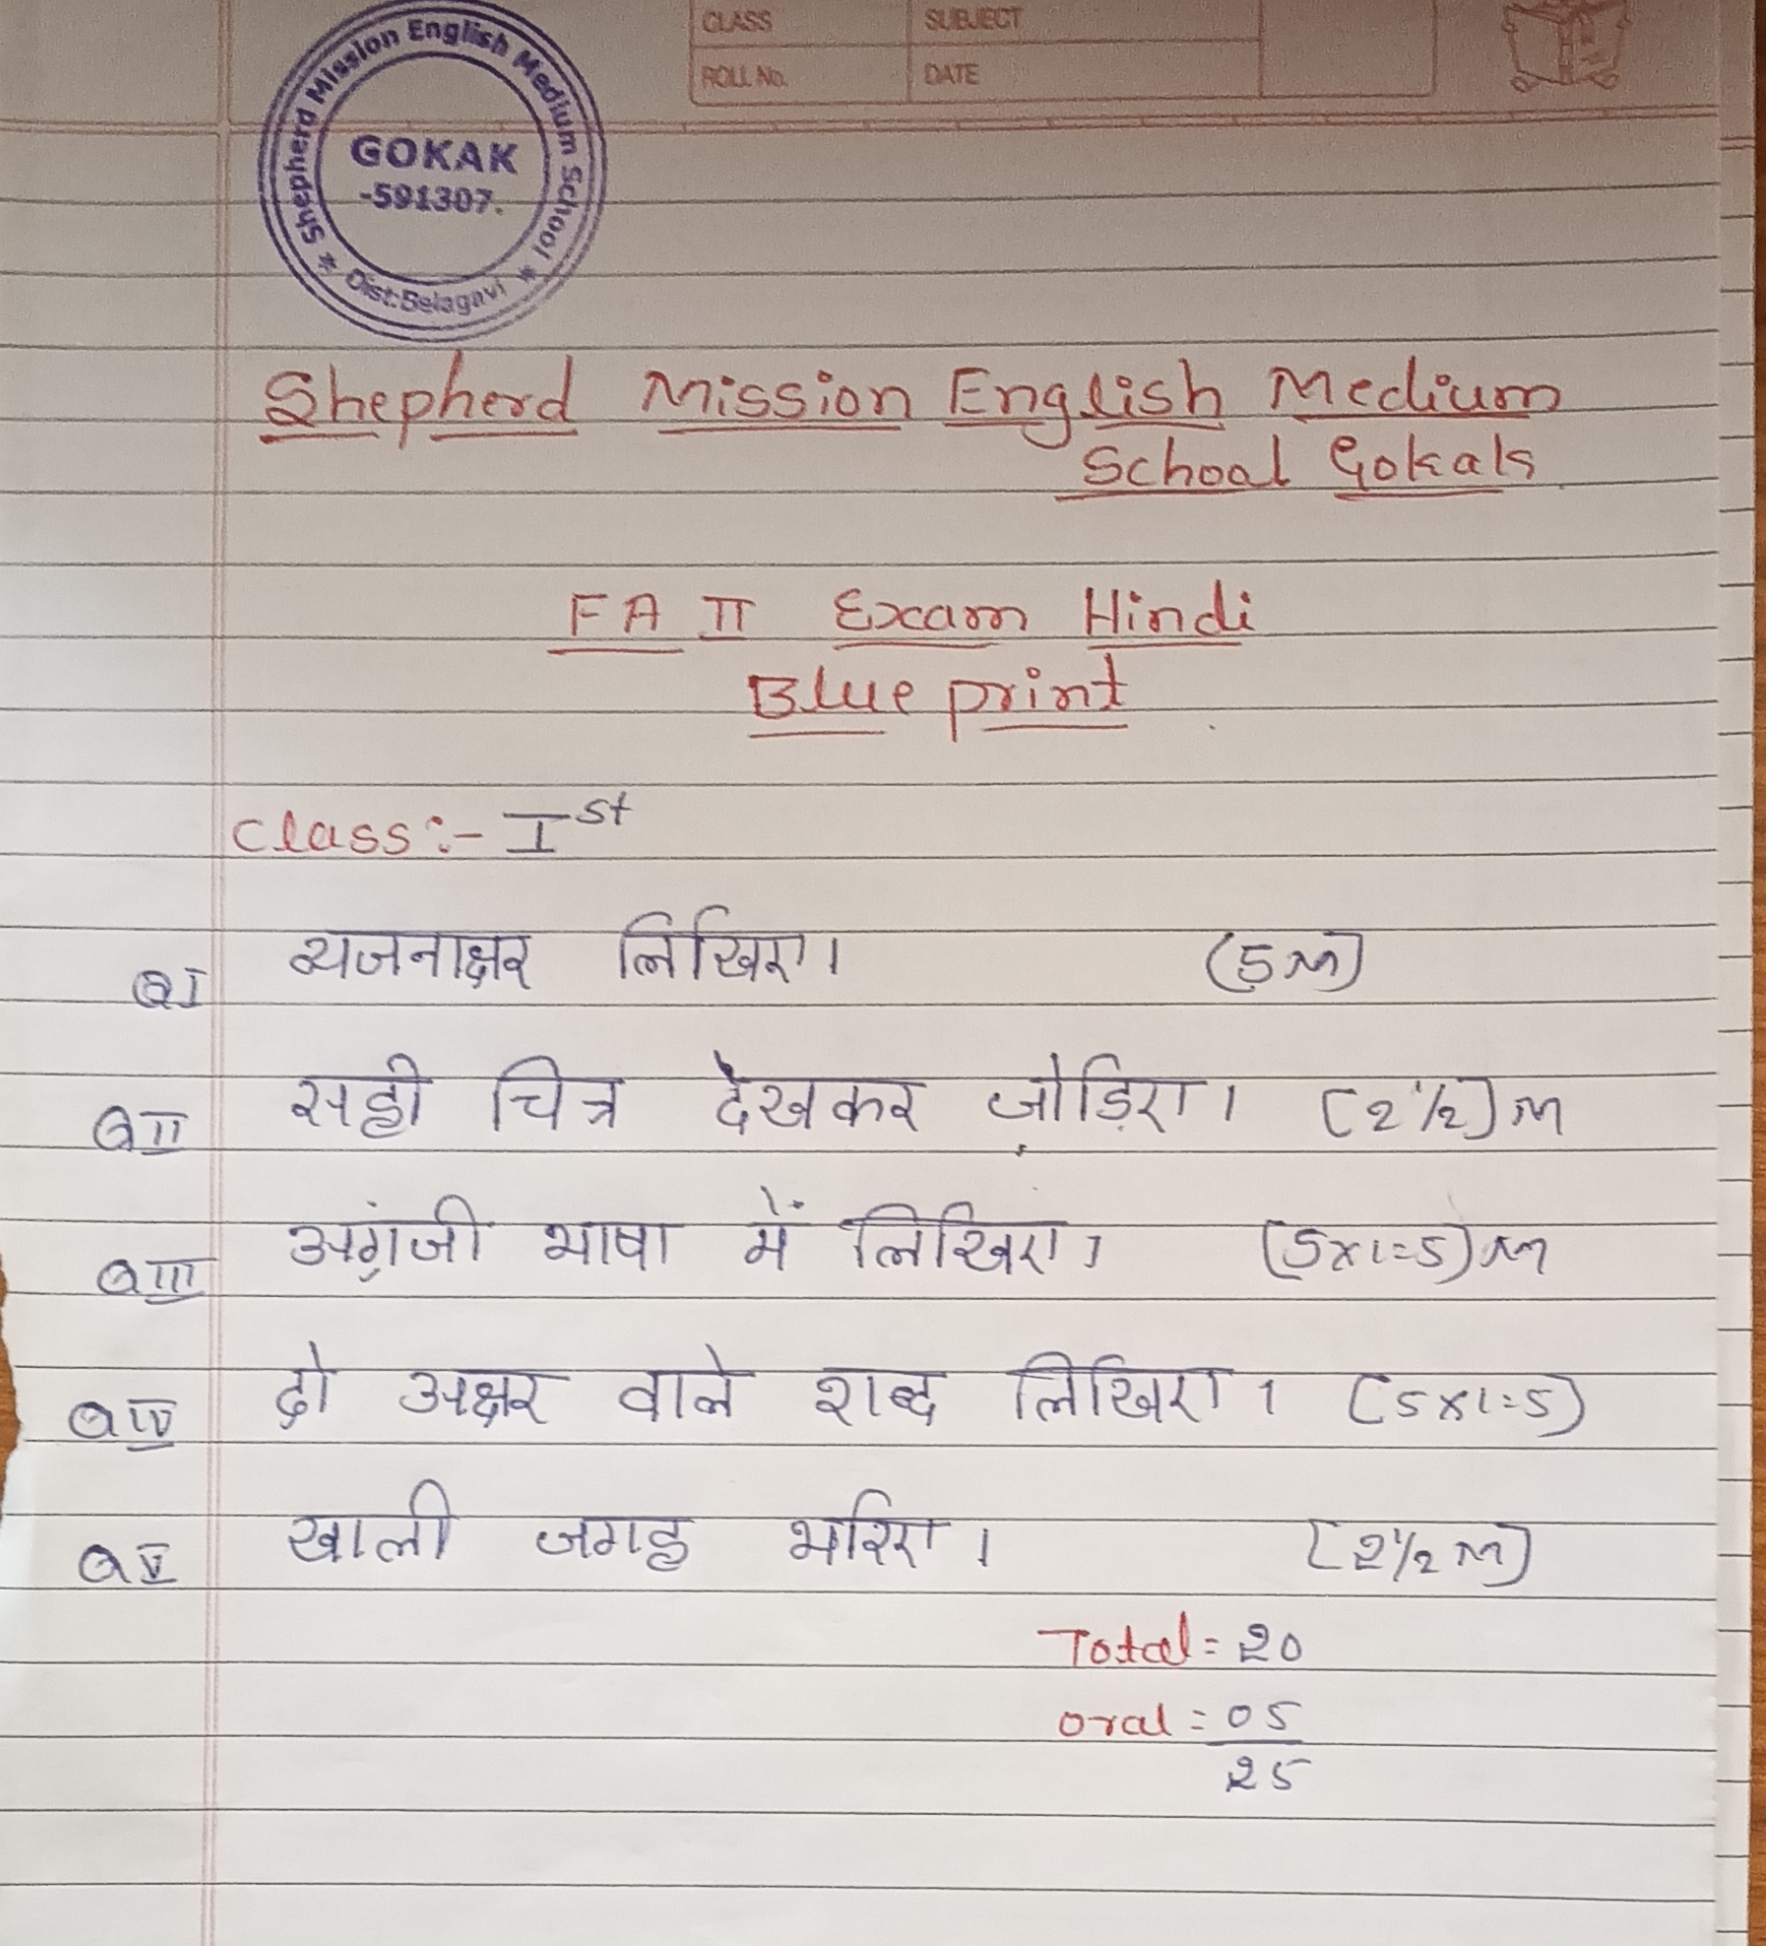 CLASS SUBJECT
ROLL No. DATE
Shepherd Mission English Medium School
GOKAK
-591307.
* Dist:Belagavi *
Shepherd Mission English Medium
School Gokak
FA II Exam Hindi
Blue print
Class:- Ist
QI व्यजनाक्षर लिखिए। (5M)
QII सही चित्र देखकर जोड़िए। [2 1/2] M
QIII अग्रंजी भाषा में लिखिए। (5x1=5) M
QIV दो अक्षर वाले शब्द लिखिए। (5x1=5)
QV खाली जगह भरिए। [2 1/2 M]
Total = 20
oral = 05
25